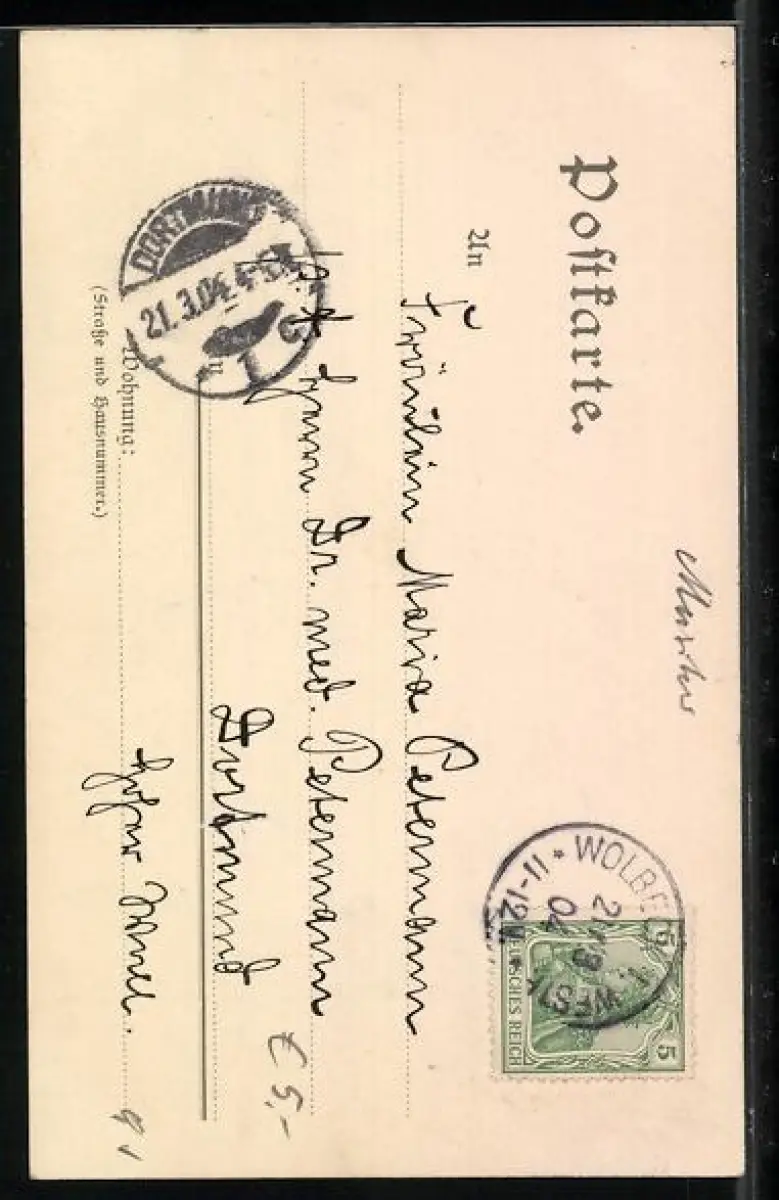 Postkarte.
An
Fräulein Maria Petermann
Herrn Dr. med. Petermann
Dortmund
Wohnung:
(Straße und Hausnummer.)
DORTMUND
21.3.04
WOLBE
04
11-12V.
WESTF
5
5
DEUTSCHES REICH
Münster
€ 5,-